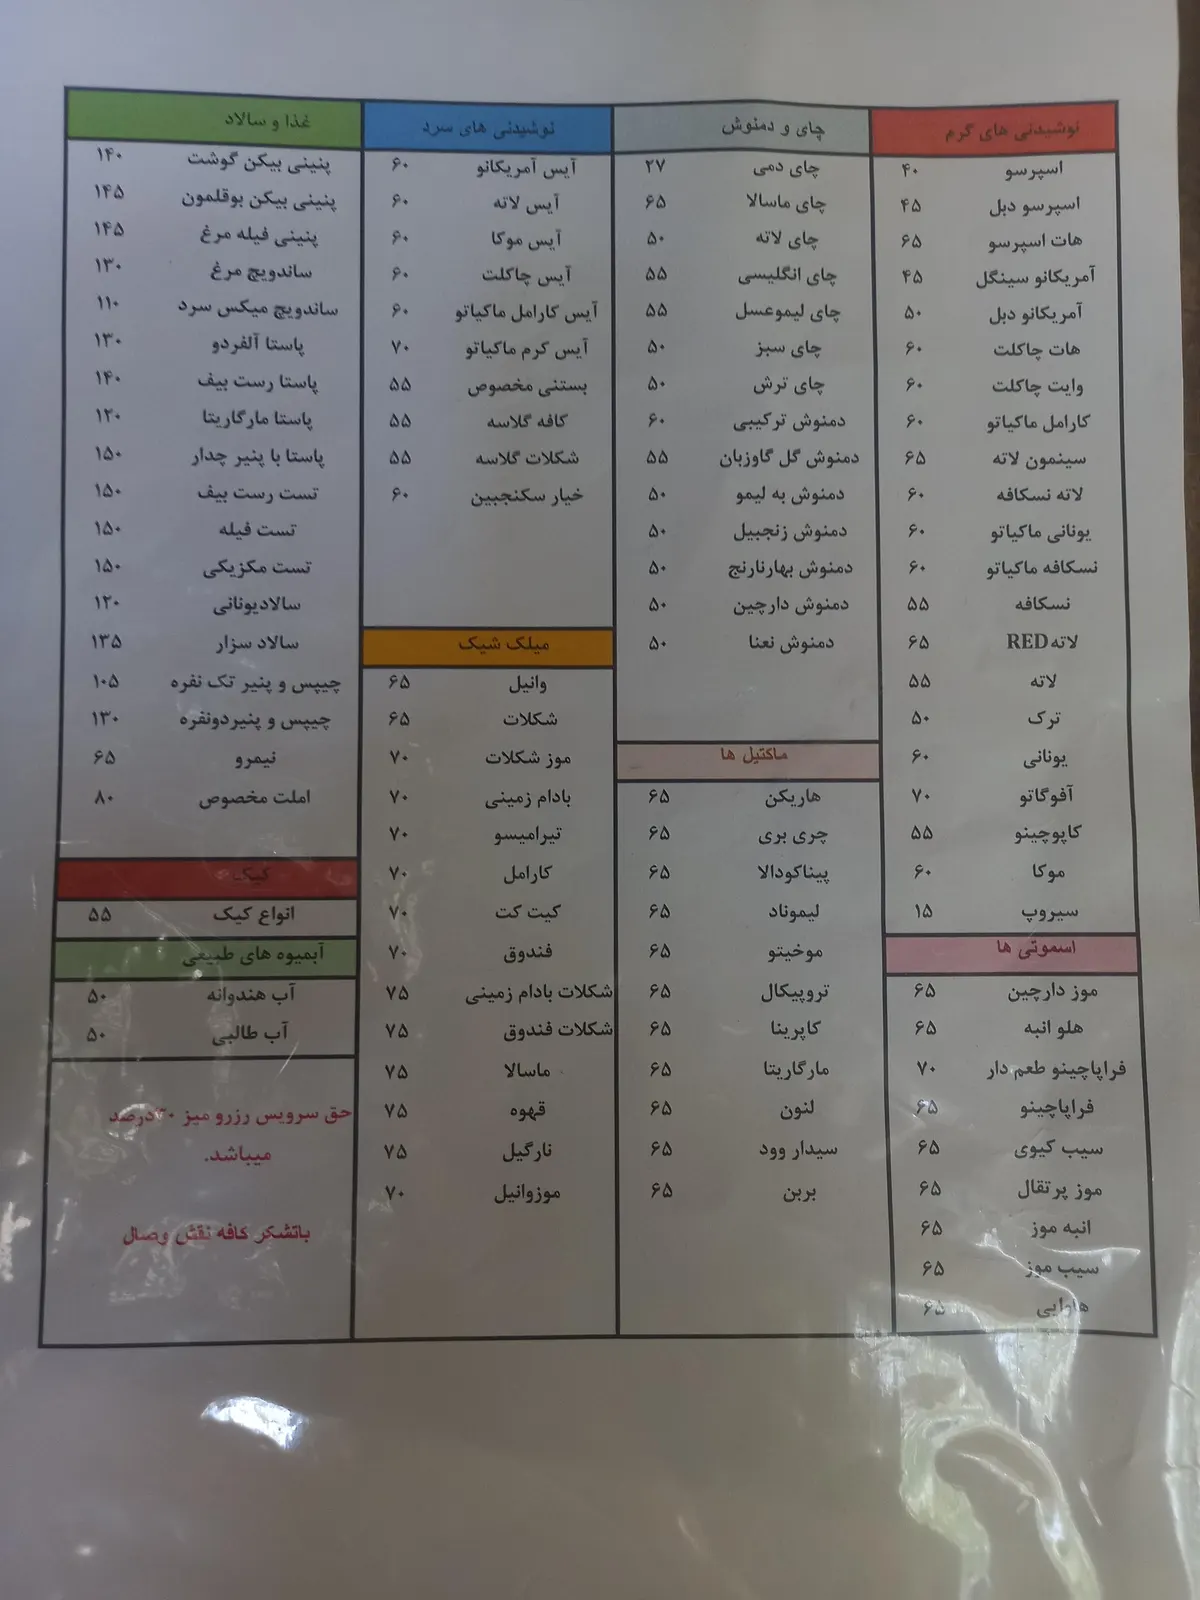 نوشیدنی های گرم
اسپرسو ۴۰
اسپرسو دبل ۴۵
هات اسپرسو ۶۵
آمریکانو سینگل ۴۵
آمریکانو دبل ۵۰
هات چاکلت ۶۰
وایت چاکلت ۶۰
کارامل ماکیاتو ۶۰
سینمون لاته ۶۵
لاته نسکافه ۶۰
یونانی ماکیاتو ۶۰
نسکافه ماکیاتو ۶۰
نسکافه ۵۵
لاته RED ۶۵
لاته ۵۵
ترک ۵۰
یونانی ۶۰
آفوگاتو ۷۰
کاپوچینو ۵۵
موکا ۶۰
سیروپ ۱۵
اسموتی ها
موز دارچین ۶۵
هلو انبه ۶۵
فراپاچینو طعم دار ۷۰
فراپاچینو ۶۵
سیب کیوی ۶۵
موز پرتقال ۶۵
انبه موز ۶۵
سیب موز ۶۵
هاوایی ۶۵
چای و دمنوش
چای دمی ۲۷
چای ماسالا ۶۵
چای لاته ۵۰
چای انگلیسی ۵۵
چای لیموعسل ۵۵
چای سبز ۵۰
چای ترش ۵۰
دمنوش ترکیبی ۶۰
دمنوش گل گاوزبان ۵۵
دمنوش به لیمو ۵۰
دمنوش زنجبیل ۵۰
دمنوش بهارنارنج ۵۰
دمنوش دارچین ۵۰
دمنوش نعنا ۵۰
ماکتیل ها
هاریکن ۶۵
چری بری ۶۵
پیناکودالا ۶۵
لیموناد ۶۵
موخیتو ۶۵
تروپیکال ۶۵
کاپرینا ۶۵
مارگاریتا ۶۵
لنون ۶۵
سیدار وود ۶۵
بربن ۶۵
نوشیدنی های سرد
آیس آمریکانو ۶۰
آیس لاته ۶۰
آیس موکا ۶۰
آیس چاکلت ۶۰
آیس کارامل ماکیاتو ۶۰
آیس کرم ماکیاتو ۷۰
بستنی مخصوص ۵۵
کافه گلاسه ۵۵
شکلات گلاسه ۵۵
خیار سکنجبین ۶۰
میلک شیک
وانیل ۶۵
شکلات ۶۵
موز شکلات ۷۰
بادام زمینی ۷۰
تیرامیسو ۷۰
کارامل ۷۰
کیت کت ۷۰
فندوق ۷۰
شکلات بادام زمینی ۷۵
شکلات فندوق ۷۵
ماسالا ۷۵
قهوه ۷۵
نارگیل ۷۵
موزوانیل ۷۰
غذا و سالاد
پنینی بیکن گوشت ۱۴۰
پنینی بیکن بوقلمون ۱۴۵
پنینی فیله مرغ ۱۴۵
ساندویچ مرغ ۱۳۰
ساندویچ میکس سرد ۱۱۰
پاستا آلفردو ۱۳۰
پاستا رست بیف ۱۴۰
پاستا مارگاریتا ۱۲۰
پاستا با پنیر چدار ۱۵۰
تست رست بیف ۱۵۰
تست فیله ۱۵۰
تست مکزیکی ۱۵۰
سالادیونانی ۱۲۰
سالاد سزار ۱۳۵
چیپس و پنیر تک نفره ۱۰۵
چیپس و پنیردونفره ۱۳۰
نیمرو ۶۵
املت مخصوص ۸۰
کیک
انواع کیک ۵۵
آبمیوه های طبیعی
آب هندوانه ۵۰
آب طالبی ۵۰
حق سرویس رزرو میز درصد
میباشد.
باتشکر کافه نقش وصال